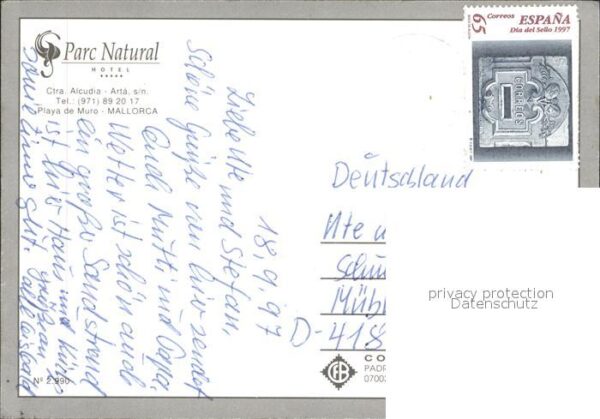 Parc Natural
HOTEL
★★★★★
Ctra. Alcudia - Artá, s/n.
Tel.: (971) 89 20 17
Playa de Muro - MALLORCA
65 Correos ESPAÑA
Día del Sello 1997
CORREOS
18.9.97
Liebe Ute und Stefan,
Schöne Grüße von hier sendet
Euch Mutti und Papa,
Wetter ist schön auch
ein großer Sandstrand
ist hier Haus und
sonst immer gut. alle
Deutschland
Ute
D-418
Nº 2.990
PADR
0700
privacy protection
Datenschutz